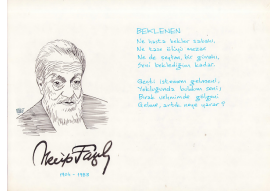 BEKLENEN
Ne hasta bekler sabahı,
Ne taze ölüyü mezar
Ne de şeytan, bir günahı,
Seni beklediğim kadar.
Geçti istemem gelmeni,
Yokluğunda buldum seni;
Bırak vehmimde gölgeni
Gelme, artık neye yarar?
Necip Fazıl
1904 - 1983